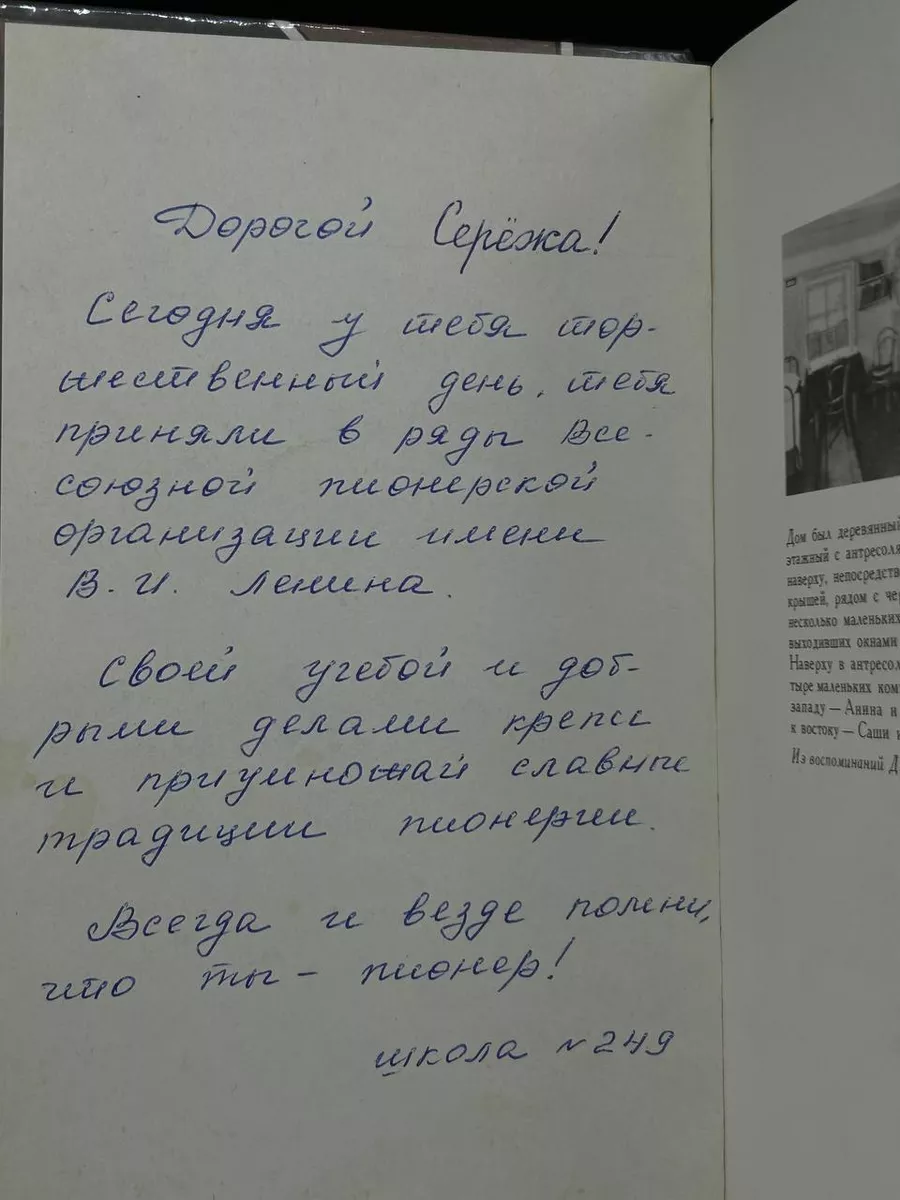 Дорогой Серёжа!
Сегодня у тебя тор-
жественный день, тебя
приняли в ряды Все-
союзной пионерской
организации имени
В. И. Ленина.
Своей учебой и доб-
рыми делами крепи
и приумножай славные
традиции пионерии.
Всегда и везде помни,
что ты – пионер!
школа №249
Дом был деревянный
этажный с антресоля
наверху, непосредств
крышей, рядом с чер
несколько маленьких
выходивших окнами
Наверху в антресол
тыре маленьких ком
западу — Анина и
к востоку — Саши и
Из воспоминаний Д